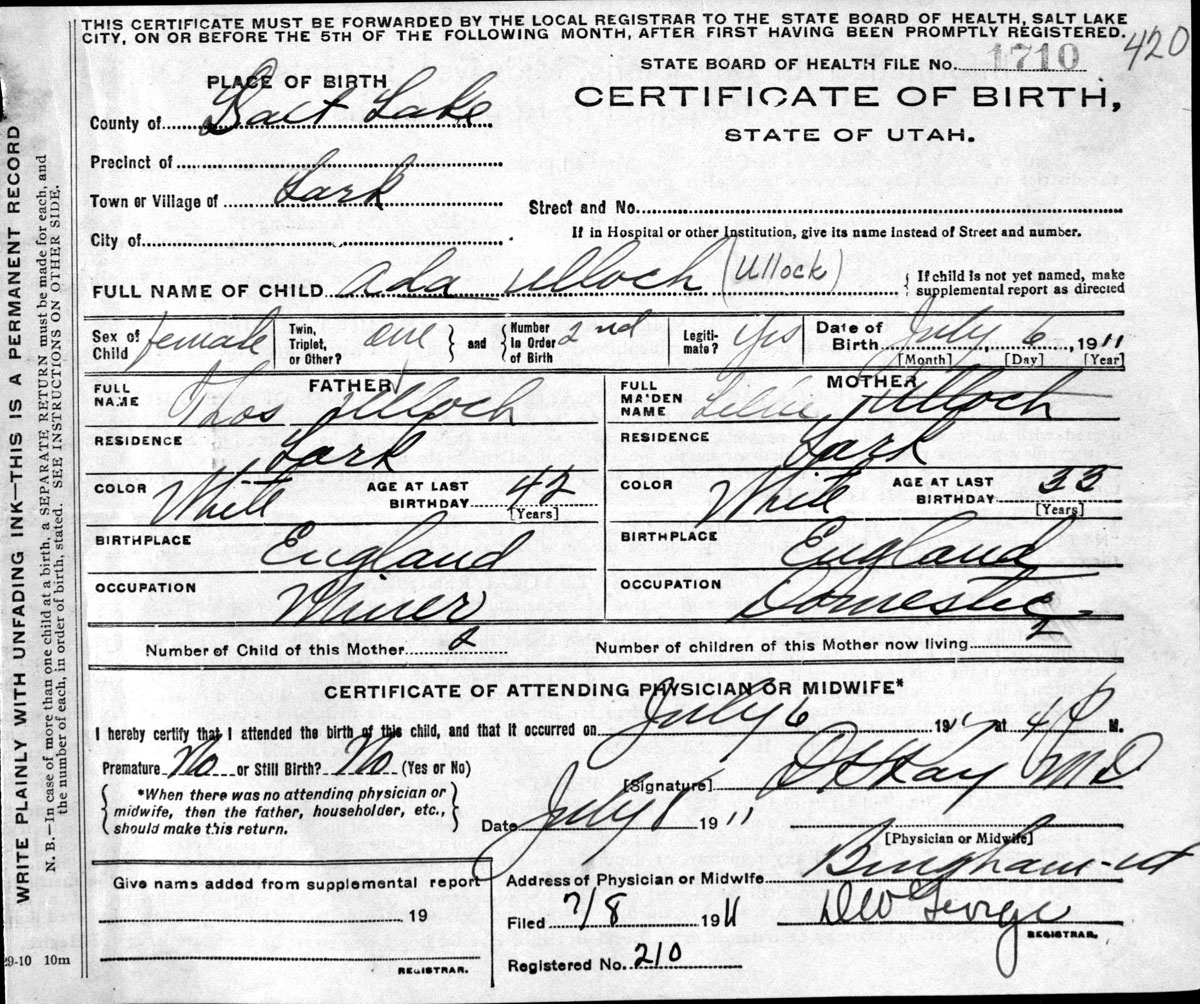 THIS CERTIFICATE MUST BE FORWARDED BY THE LOCAL REGISTRAR TO THE STATE BOARD OF HEALTH, SALT LAKE
CITY, ON OR BEFORE THE 5TH OF THE FOLLOWING MONTH, AFTER FIRST HAVING BEEN PROMPTLY REGISTERED.
420
STATE BOARD OF HEALTH FILE No. 1710
CERTIFICATE OF BIRTH,
STATE OF UTAH.
PLACE OF BIRTH
County of Salt Lake
Precinct of
Town or Village of Lark
Street and No.
City of
If in Hospital or other Institution, give its name instead of Street and number.
FULL NAME OF CHILD Ada Ulloch (Ullock)
{ If child is not yet named, make
supplemental report as directed
Sex of Child female
Twin, Triplet, or Other? one
} and {
Number In Order of Birth 2nd
Legiti-mate? Yes
Date of Birth July 6, 1911
[Month] [Day] [Year]
FATHER
FULL NAME Thos Ulloch
RESIDENCE Lark
COLOR White AGE AT LAST BIRTHDAY 42
[Years]
BIRTHPLACE England
OCCUPATION Miner
MOTHER
FULL MAIDEN NAME Ulloch
RESIDENCE Lark
COLOR White AGE AT LAST BIRTHDAY 33
[Years]
BIRTHPLACE England
OCCUPATION Domestic
Number of Child of this Mother 2
Number of children of this Mother now living 2
CERTIFICATE OF ATTENDING PHYSICIAN OR MIDWIFE*
I hereby certify that I attended the birth of this child, and that it occurred on July 6 1911 at 4 P M.
Premature No or Still Birth? No (Yes or No)
{ *When there was no attending physician or
midwife, then the father, householder, etc.,
should make this return. }
[Signature] Kay MD
Date July 8 1911
[Physician or Midwife]
Give name added from supplemental report
19
REGISTRAR.
Address of Physician or Midwife Bingham-ut
Filed 7/8 1911 DW George
REGISTRAR.
Registered No. 210
29-10 10m
WRITE PLAINLY WITH UNFADING INK—THIS IS A PERMANENT RECORD
N. B.—In case of more than one child at a birth, a SEPARATE RETURN must be made for each, and
the number of each, in order of birth, stated. SEE INSTRUCTIONS ON OTHER SIDE.